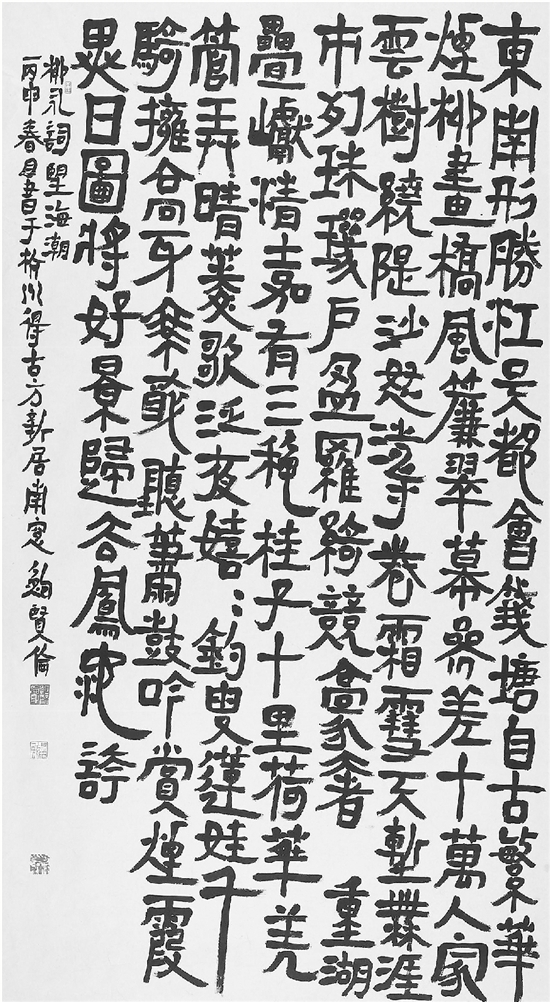 東南形勝江吳都會錢塘自古繁華
煙柳畫橋風簾翠幕參差十萬人家
雲樹繞隄沙怒濤卷霜雪天塹無涯
市列珠璣戶盈羅綺競豪奢 重湖
疊巘清嘉有三秋桂子十里荷華羌
管弄晴菱歌泛夜嬉〻釣叟蓮娃千
騎擁高牙乘醉聽簫鼓吟賞煙霞
異日圖將好景歸去鳳池誇
柳永詞望海潮
丙申春月書于杭州得古方新居南窗 鮑賢倫